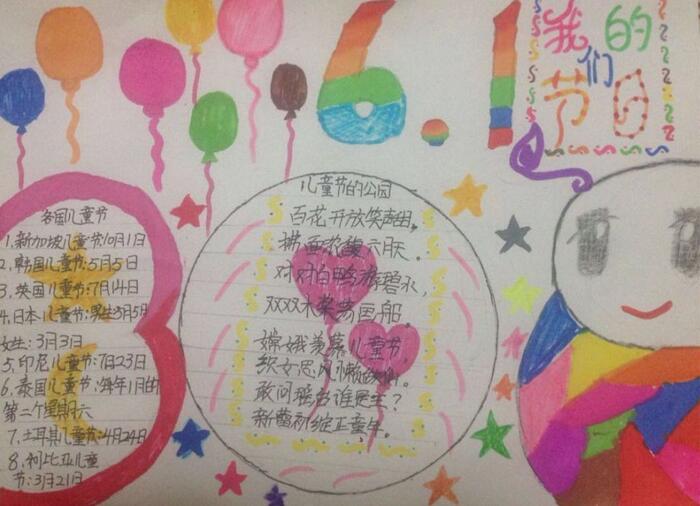 6.1
我们的
节日
各国儿童节
1.新加坡儿童节10月1日
2.韩国儿童节:5月5日
3.英国儿童节:7月14日
4.日本儿童节:男生3月5日
女生:3月3日
5.印尼儿童节:7日23日
6.泰国儿童节:每年1日的
第二个星期六
7.土耳其儿童节:4月24日
8.利比亚儿童
节:3月21日
儿童节的公园
百花开放笑声甜,
六月天。
对对白鸭游碧水,
双双木桨荡国船。
嫦娥羡慕儿童节,
织女思凡懒
敢问谁
新蕾初绽正童年。